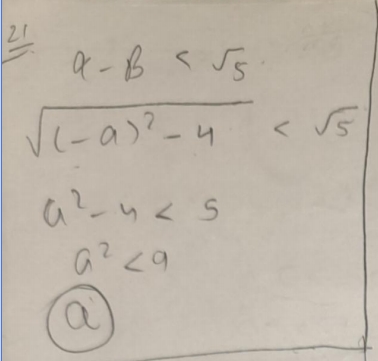 21
α - β < √5
√((-a)² - 4) < √5
a² - 4 < 5
a² < 9
a